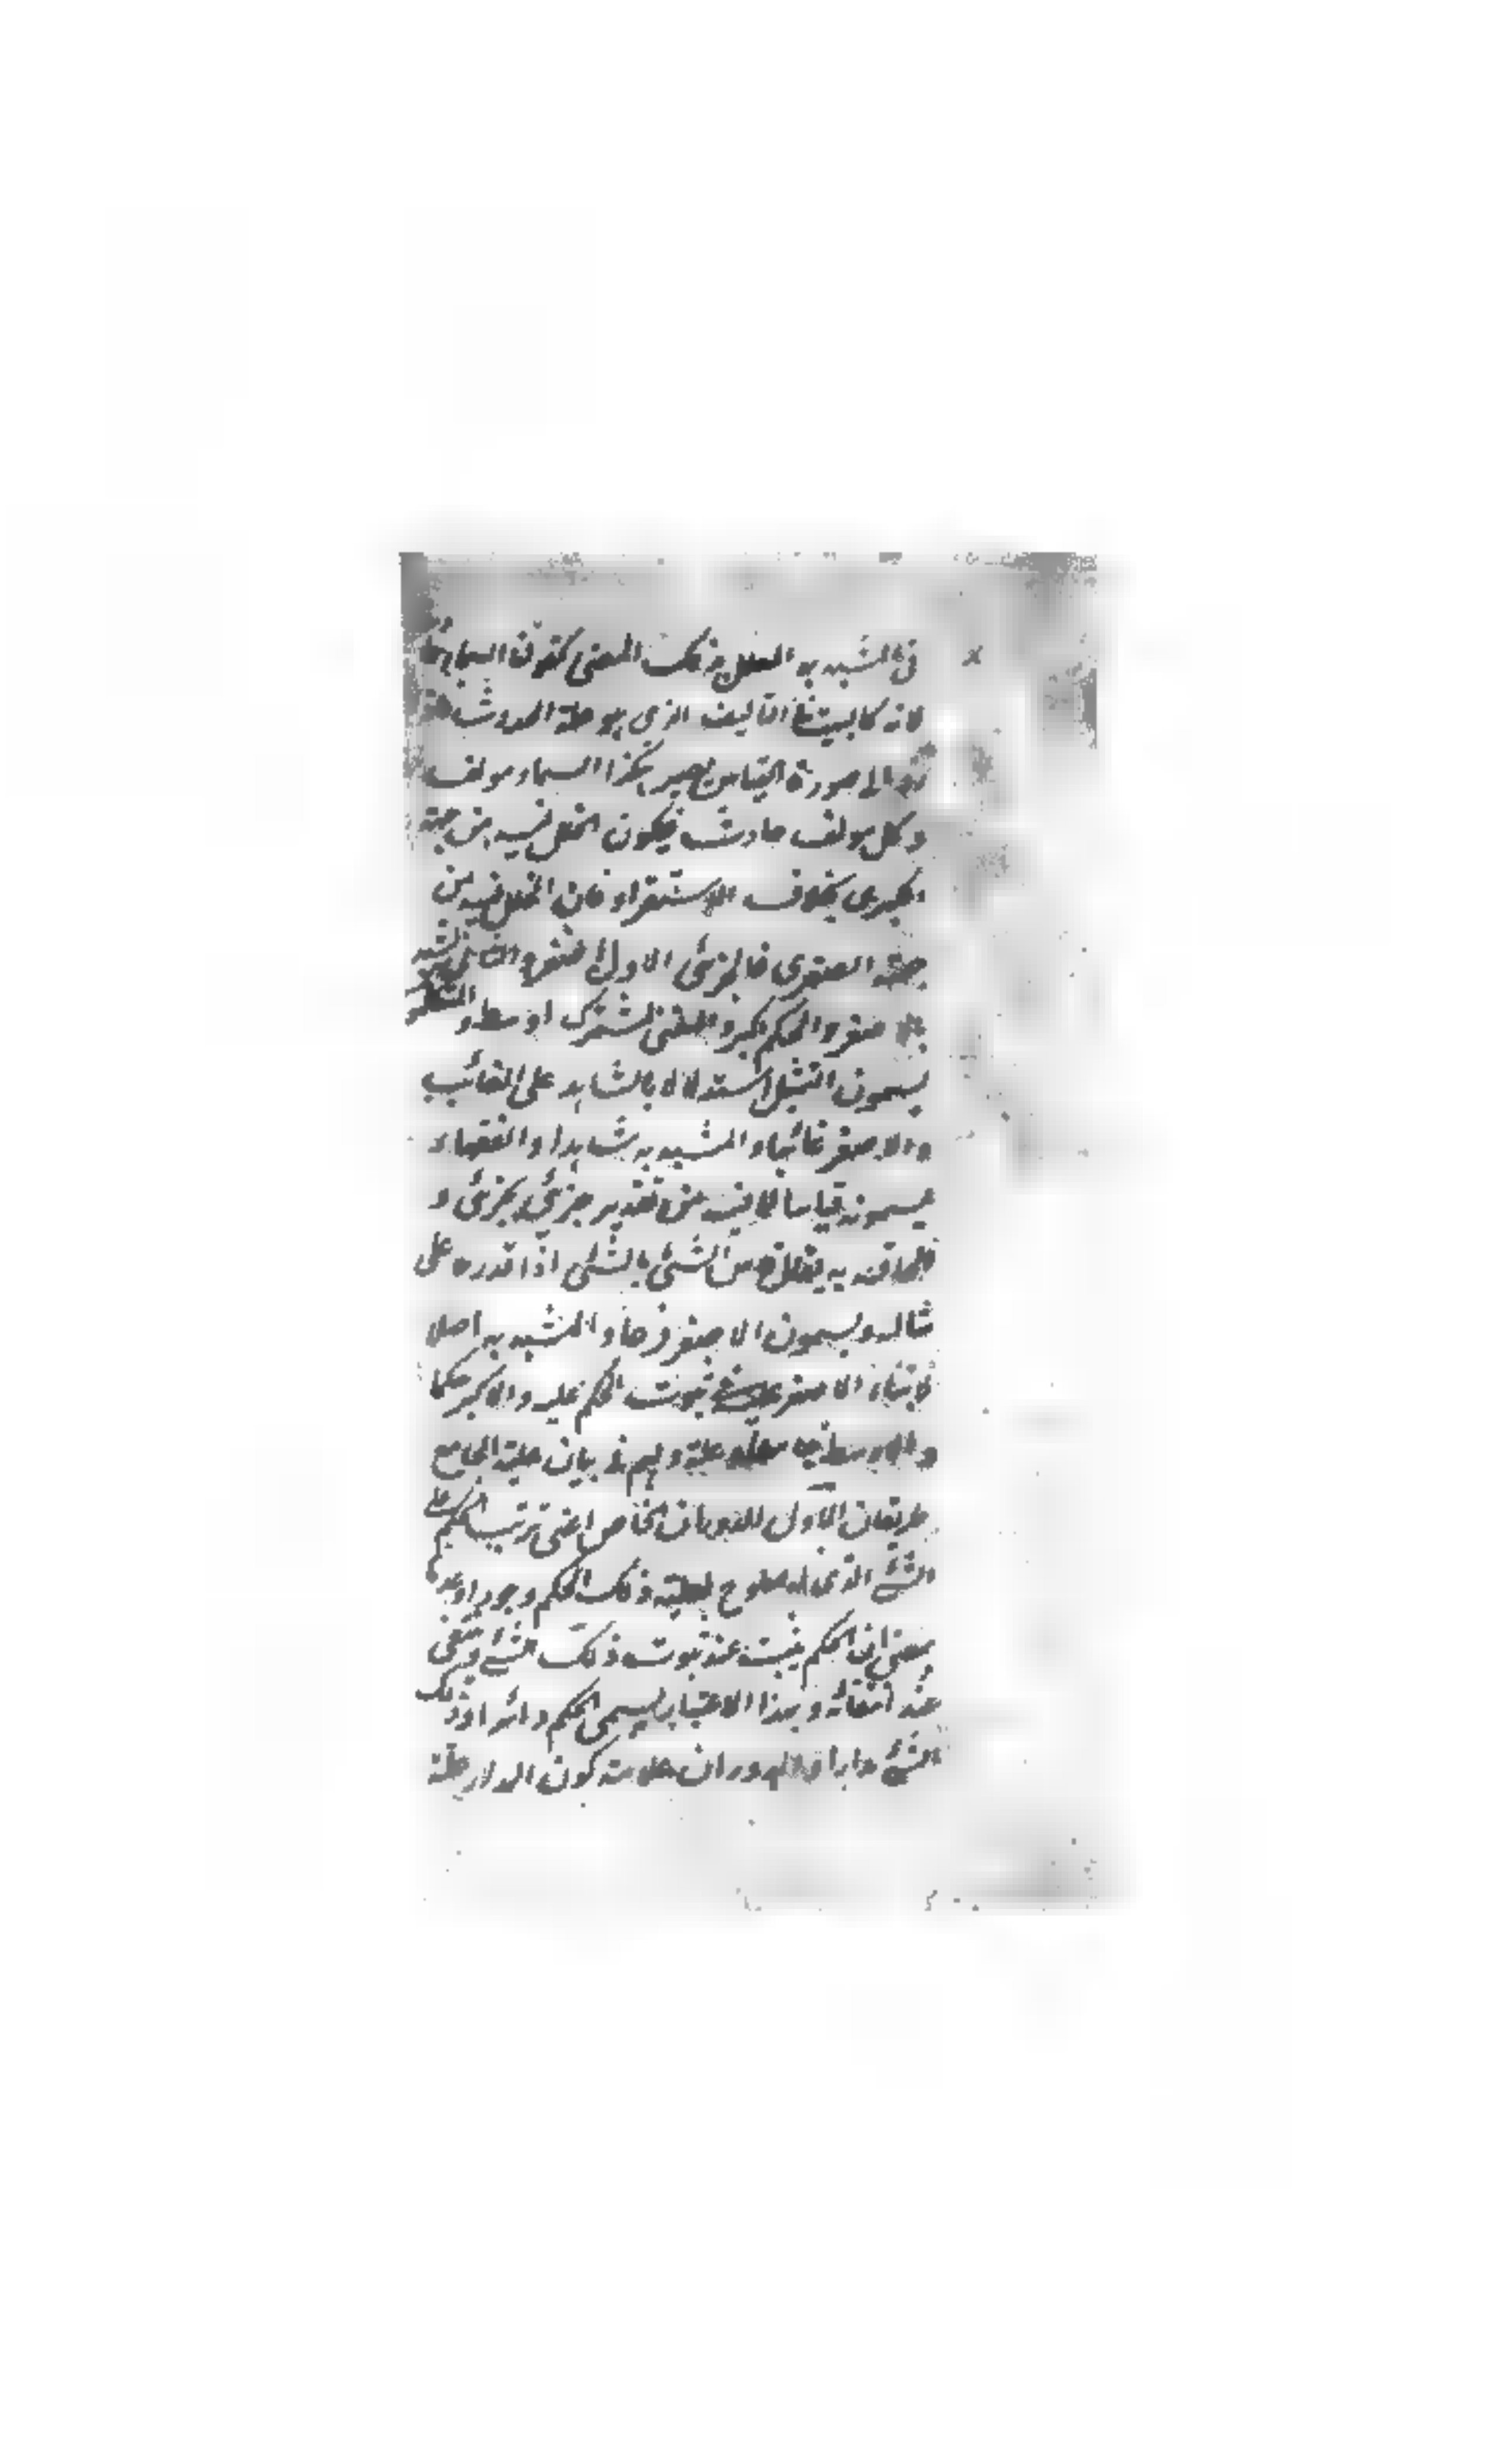 فى المشبه به المعلل بذلك المعنى كقولنا السماء حادث
لانه كالبيت فى التاليف الذى هو علة الحدوث فاذا
رد الى صورة القياس يصير هكذا السماء مولف
وكل مولف حادث فيكون الخلل فيه من جهة
الكبرى بخلاف الاستقراء فان الخلل فيه من
جهة الصغرى فالجزئى الاول اصغر والثانى شبيه
بالاصغر والحكم اكبر والمعنى المشترك اوسط والمتكلمون
يسمون التمثيل استدلالا بالشاهد على الغائب
والاصغر غائبا والمشبه به شاهدا والفقهاء
يسمونه قياسا لما فيه من تقدير جزئى بجزئى و
الحاقه به يقال قاس الشئ بالشئ اذا قدره على
مثاله ويسمون الاصغر فرعا والمشبه به اصلا
لابتناء الاصغر على ثبوت الحكم عليه والاكبر حكما
والاوسط جامعا وعلة ولهم فى بيان علية الجامع
طريقان الاول الدوران الخاص اعنى ترتب الحكم على
الشئ الذى له صلوح لعلية ذلك الحكم وجودا وعدما
بمعنى ان الحكم يثبت عند ثبوت ذلك الشئ وينتفى
عند انتفائه وبهذا الاعتبار يسمى الحكم دائرا وذلك
الشئ مدارا والدوران علامة كون المدار علة